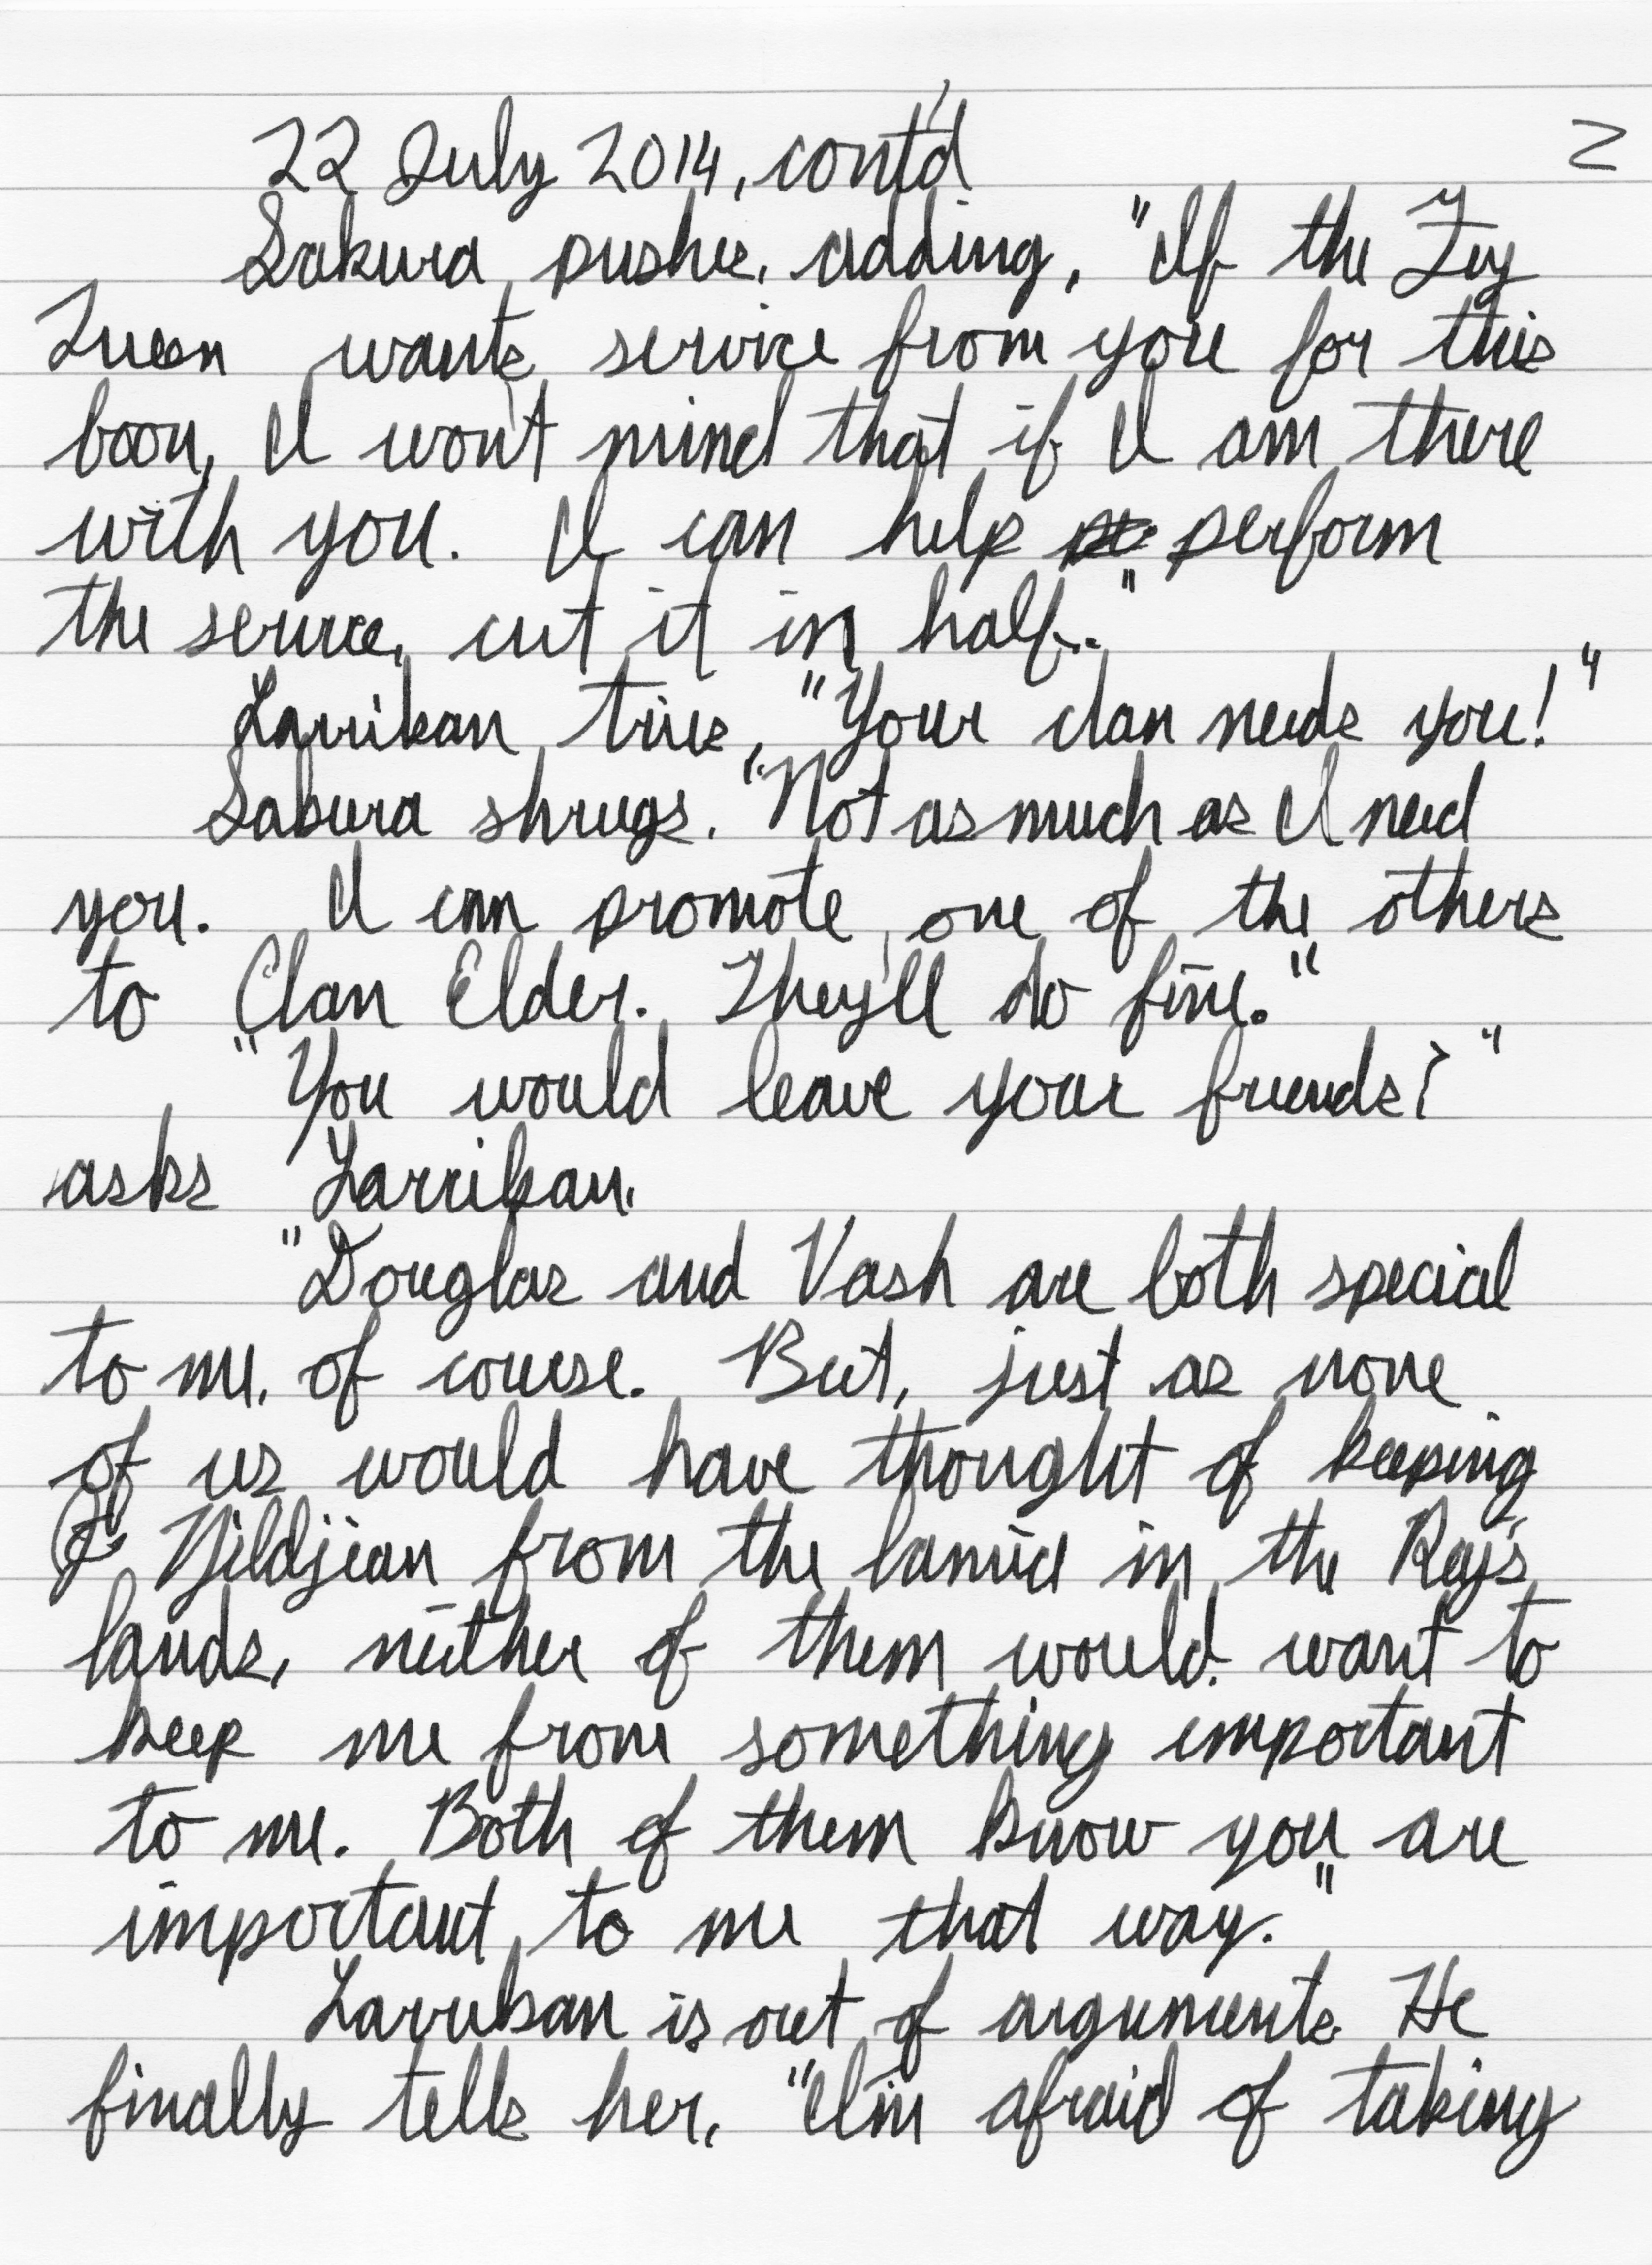 22 July 2014, cont'd
2
Sakura pushes, adding, "If the Fey
Queen wants service from you for this
boon, I won't mind that if I am there
with you. I can help perform
the service, cut it in half."
Larrikan tries, "Your clan needs you!"
Sakura shrugs. "Not as much as I need
you. I can promote one of the others
to Clan Elder. They'll do fine."
"You would leave your friends?"
asks Larrikan.
"Douglas and Vash are both special
to me, of course. But, just as none
of us would have thought of keeping
Zildjian from the lamia in the Raj's
lands, neither of them would want to
keep me from something important
to me. Both of them know you are
important to me that way."
Larrikan is out of arguments. He
finally tells her, "I'm afraid of taking